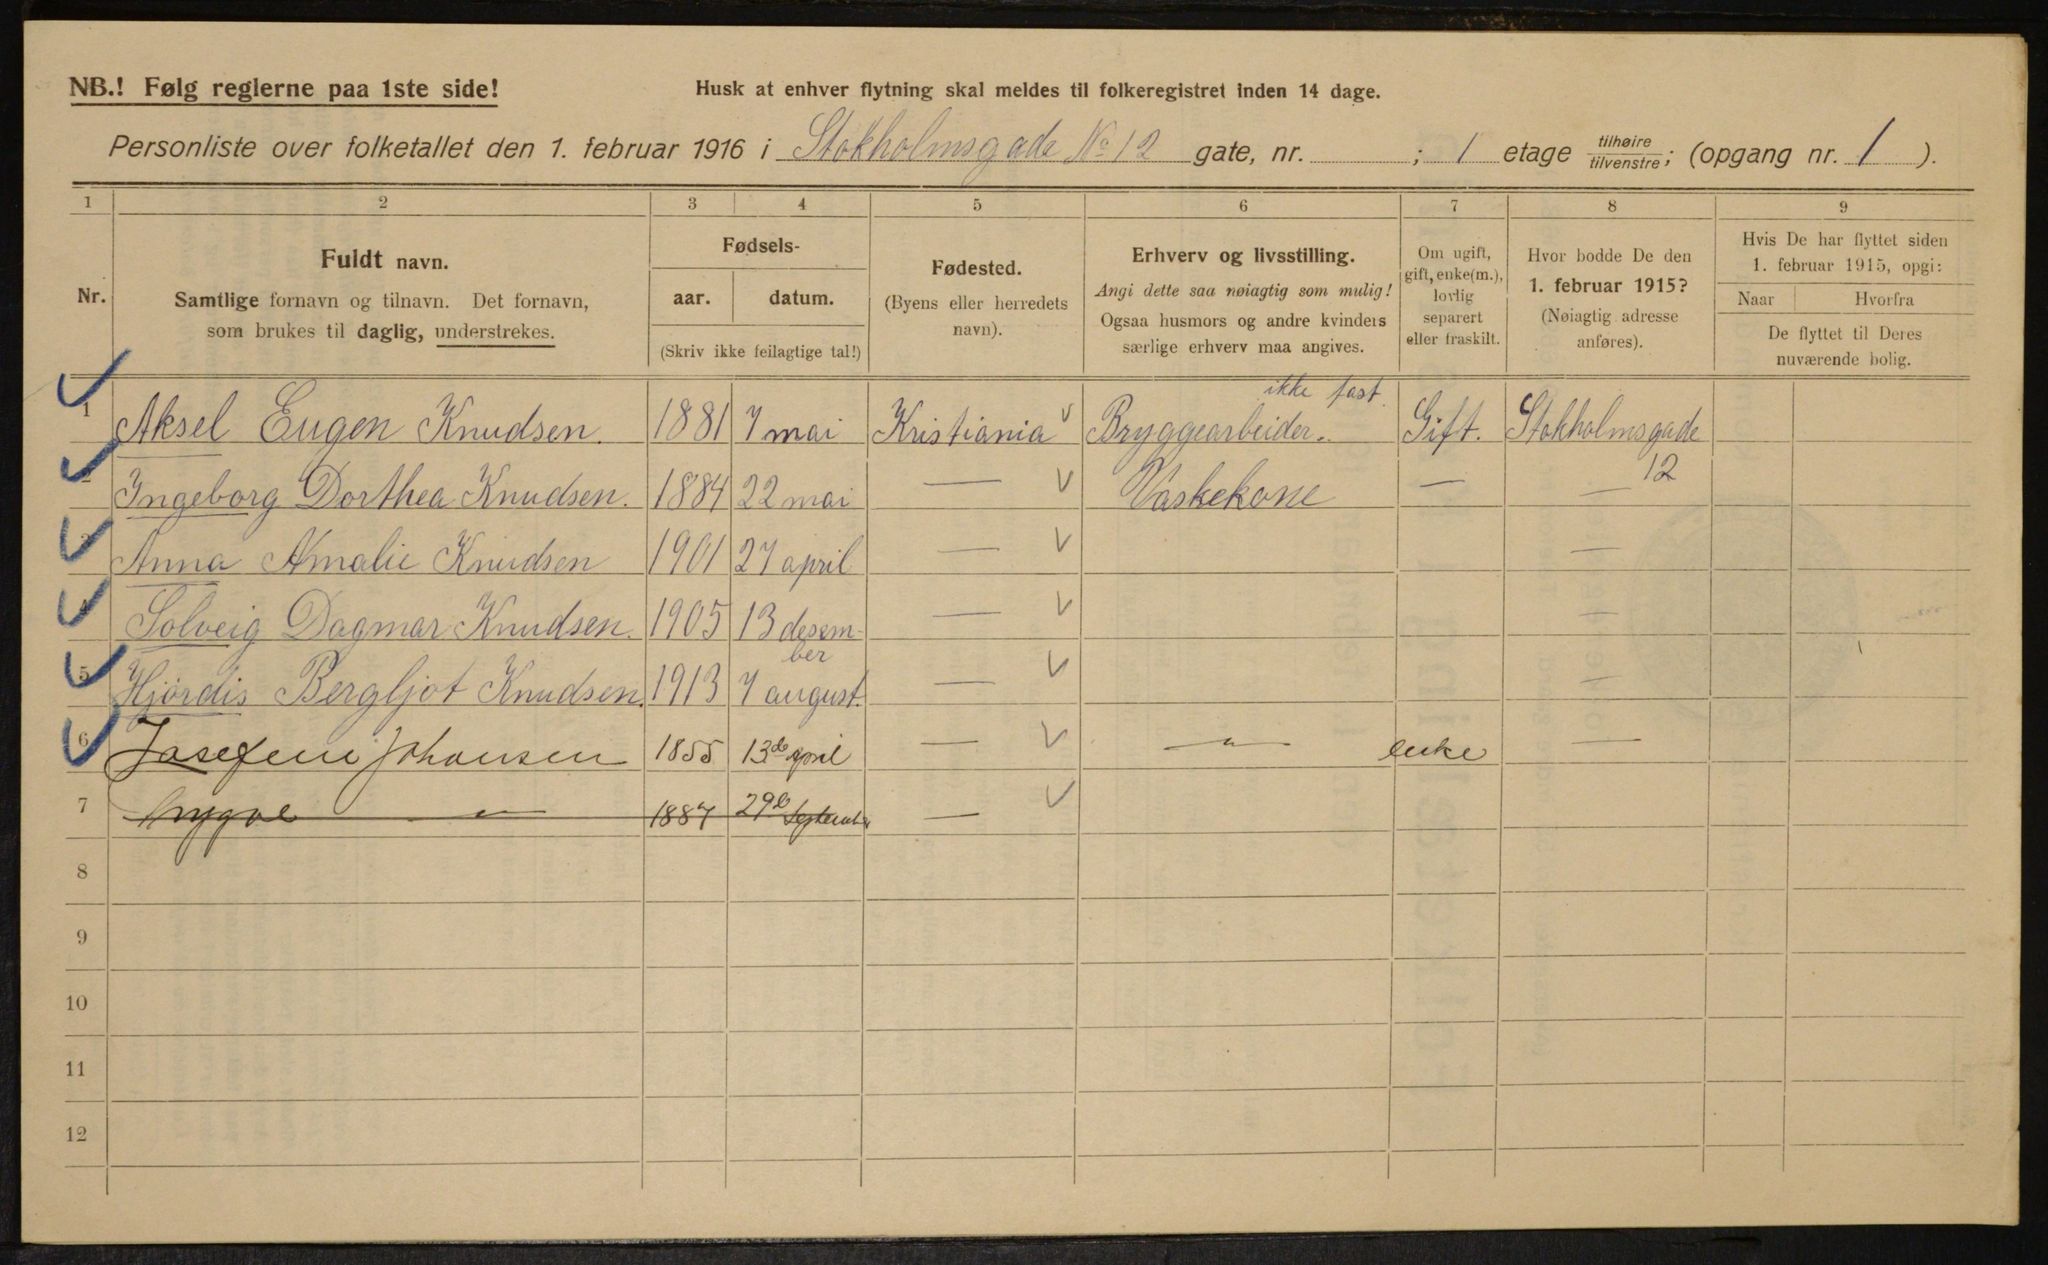 NB.! Følg reglerne paa 1ste side!
Husk at enhver flytning skal meldes til folkeregistret inden 14 dage.
Personliste over folketallet den 1. februar 1916 i Stokholmsgade No 12 gate, nr. ; 1 etage tilhøire/tilvenstre; (opgang nr. 1 ).
1 2 3 4 5 6 7 8 9
Nr.
Fuldt navn.
Samtlige fornavn og tilnavn. Det fornavn,
som brukes til daglig, understrekes.
Fødsels-
aar. datum.
(Skriv ikke feilagtige tal!)
Fødested.
(Byens eller herredets
navn).
Erhverv og livsstilling.
Angi dette saa nøiagtig som mulig!
Ogsaa husmors og andre kvinders
særlige erhverv maa angives.
Om ugift,
gift, enke(m.),
lovlig
separert
eller fraskilt.
Hvor bodde De den
1. februar 1915?
(Nøiagtig adresse
anføres).
Hvis De har flyttet siden
1. februar 1915, opgi:
Naar Hvorfra
De flyttet til Deres
nuværende bolig.
ikke fast.
1 Aksel Eugen Knudsen. 1881 7 mai Kristiania Bryggearbeider. Gift. Stokholmsgade
12
2 Ingeborg Dorthea Knudsen. 1884 22 mai — Vaskekone — —
3 Anna Amalie Knudsen 1901 27 april — —
4 Solveig Dagmar Knudsen. 1905 13 desem-
ber — —
5 Hjördis Bergljot Knudsen. 1913 7 august. — —
6 Josefene Johansen 1855 13de april — — " — enke —
7 — " — 1887 29de September —
8
9
10
11
12